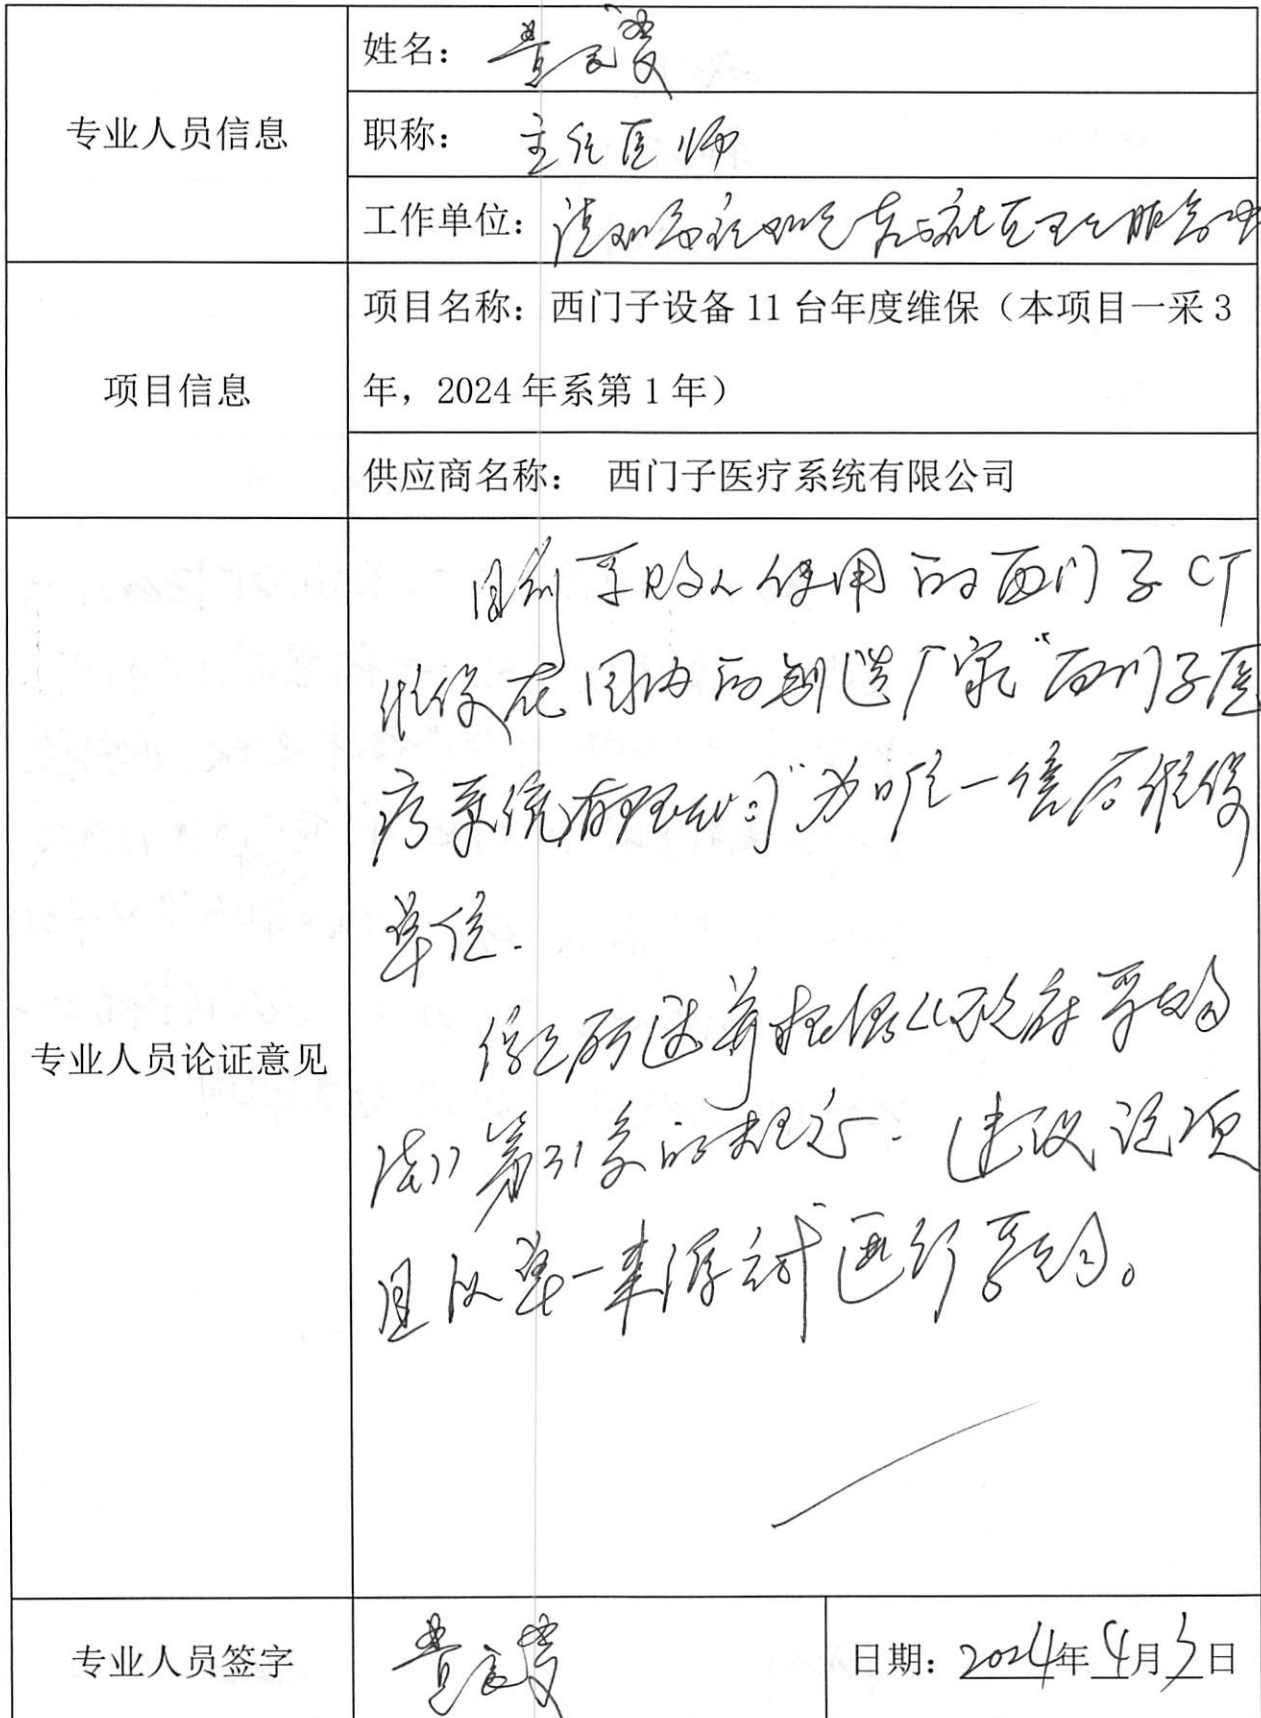 专业人员信息
姓名：黄
职称：主任医师
工作单位：社区卫生服务中
项目信息
项目名称：西门子设备 11 台年度维保（本项目一采 3
年，2024 年系第 1 年）
供应商名称： 西门子医疗系统有限公司
专业人员论证意见
目前采购人使用的西门子CT
维保在国内的制造厂家“西门子医
疗系统有限公司”为唯一售后维保
单位.
综上所述并根据《政府采购
法》第31条的规定. 建议该项
目以单一来源方式进行采购。
专业人员签字
黄
日期：2024年4月3日